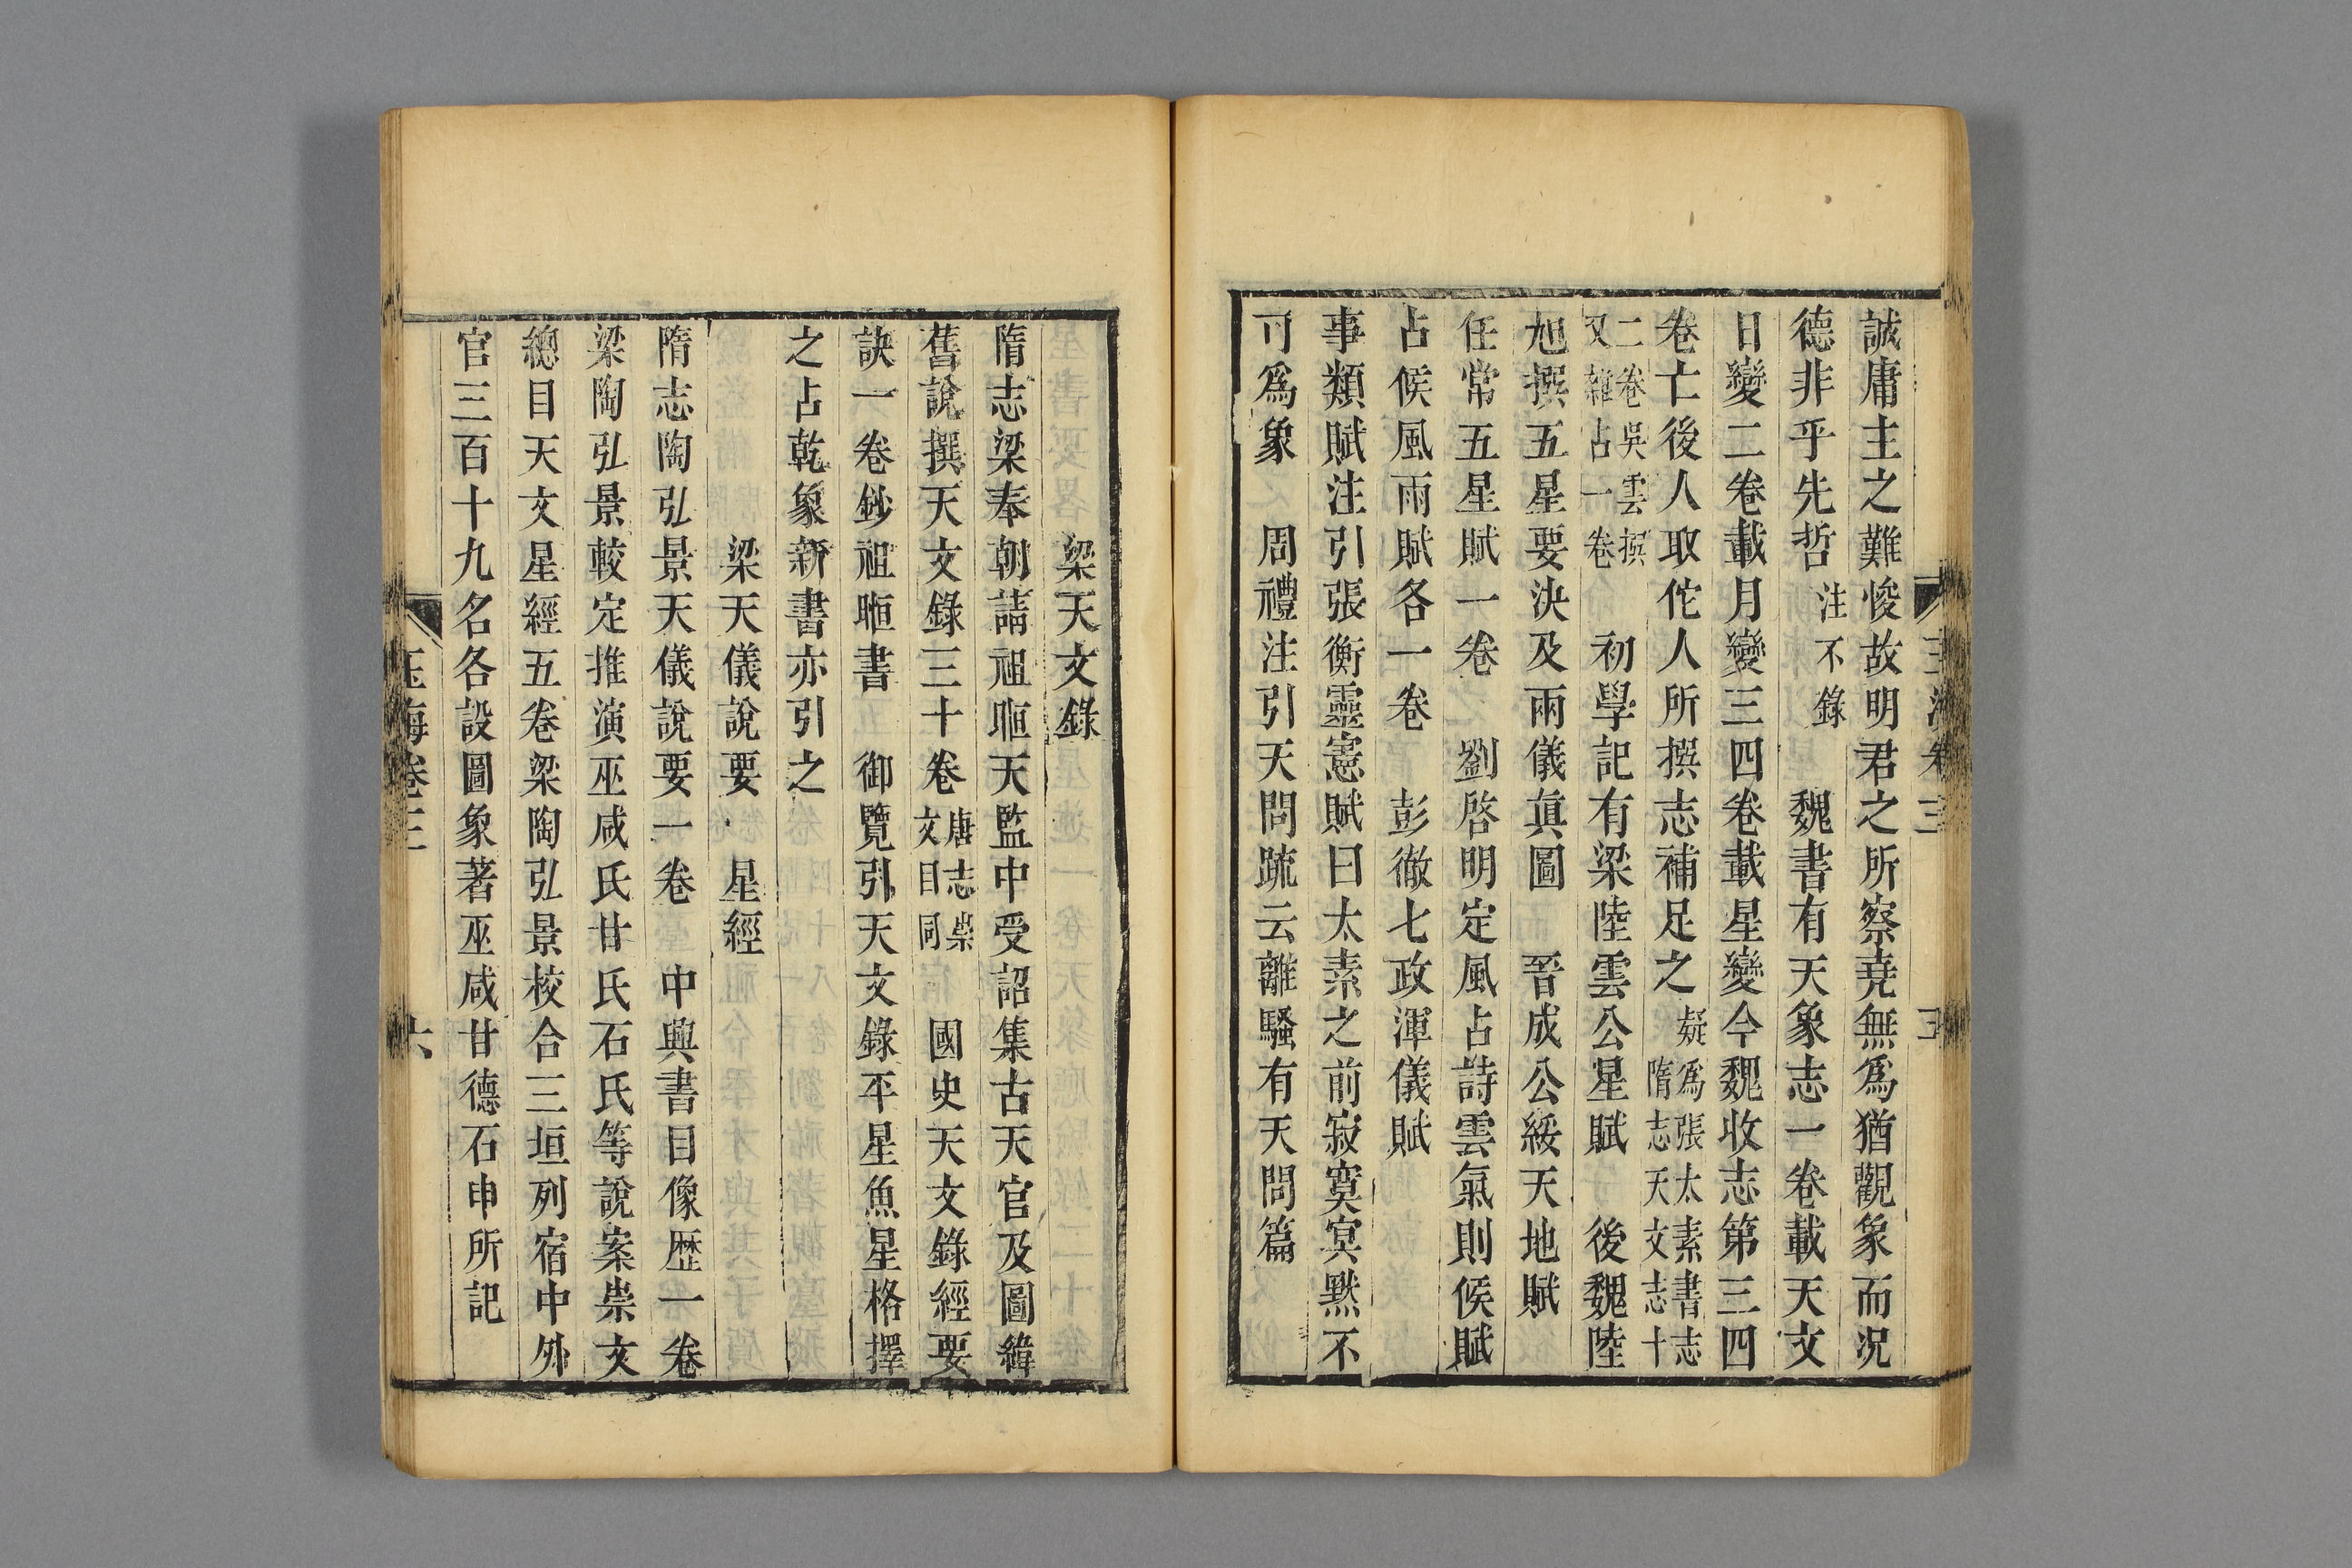 誠庸主之難悛故明君之所察堯無爲猶觀象而況
德非乎先哲注不錄 魏書有天象志一卷載天文
日變二卷載月變三四卷載星變今魏收志第三四
卷亡後人取佗人所撰志補足之疑爲張太素書志
隋志天文志十
二卷吳雲撰
又雜占一卷
初學記有梁陸雲公星賦 後魏陸
旭撰五星要決及兩儀眞圖 晉成公綏天地賦
任常五星賦一卷 劉啓明定風占詩雲氣則候賦
占候風雨賦各一卷 彭徹七政渾儀賦
事類賦注引張衡靈憲賦曰太素之前寂寞冥默不
可爲象 周禮注引天問疏云離騷有天問篇
梁天文錄
隋志梁奉朝請祖暅天監中受詔集古天官及圖緯
舊說撰天文錄三十卷唐志崇
文目同
國史天文錄經要
訣一卷鈔祖暅書 御覽引天文錄平星魚星格擇
之占乾象新書亦引之
梁天儀說要 星經
隋志陶弘景天儀說要一卷 中興書目像歷一卷
梁陶弘景較定推演巫咸氏甘氏石氏等說案崇文
總目天文星經五卷梁陶弘景校合三垣列宿中外
官三百十九名各設圖象著巫咸甘德石申所記
玉海卷三
六